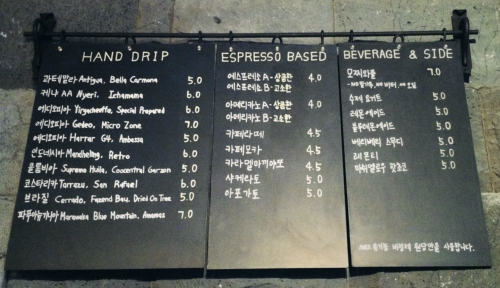 HAND DRIP
과테말라 Antigua, Bella Carmona 5.0
케냐 AA Nyeri, Ichamama 6.0
에디오피아 Yirgacheffe, Special Prepared 6.0
에디오피아 Gedeo, Micro Zone 7.0
에디오피아 Harrar G4, Ambessa 5.0
인도네시아 Mandheling, Retro 6.0
콜롬비아 Supremo Huila, Cocentral Garzon 5.0
코스타리카 Tarrazu, San Rafael 6.0
브라질 Cerrado, Fazend Bau, Dried On Tree 5.0
파푸아뉴기니 Marawaka Blue Mountain, 7.0
ESPRESSO BASED
에스프레소 A - 상큼한 4.0
에스프레소 B - 고소한
아메리카노 A - 상큼한 4.0
아메리카노 B - 고소한
카페라떼 4.5
카페모카 4.5
카라멜마끼아또 4.5
샤케라토 5.0
아포가토 5.0
BEVERAGE & SIDE
모찌와플 7.0
수제 요거트 5.0
레몬에이드 5.0
블루레몬에이드 5.0
베리베리 스무디 5.0
라몬티 5.0
마쉬멜로우 핫초코 5.0
유기농 비정제 원당만을 사용합니다.